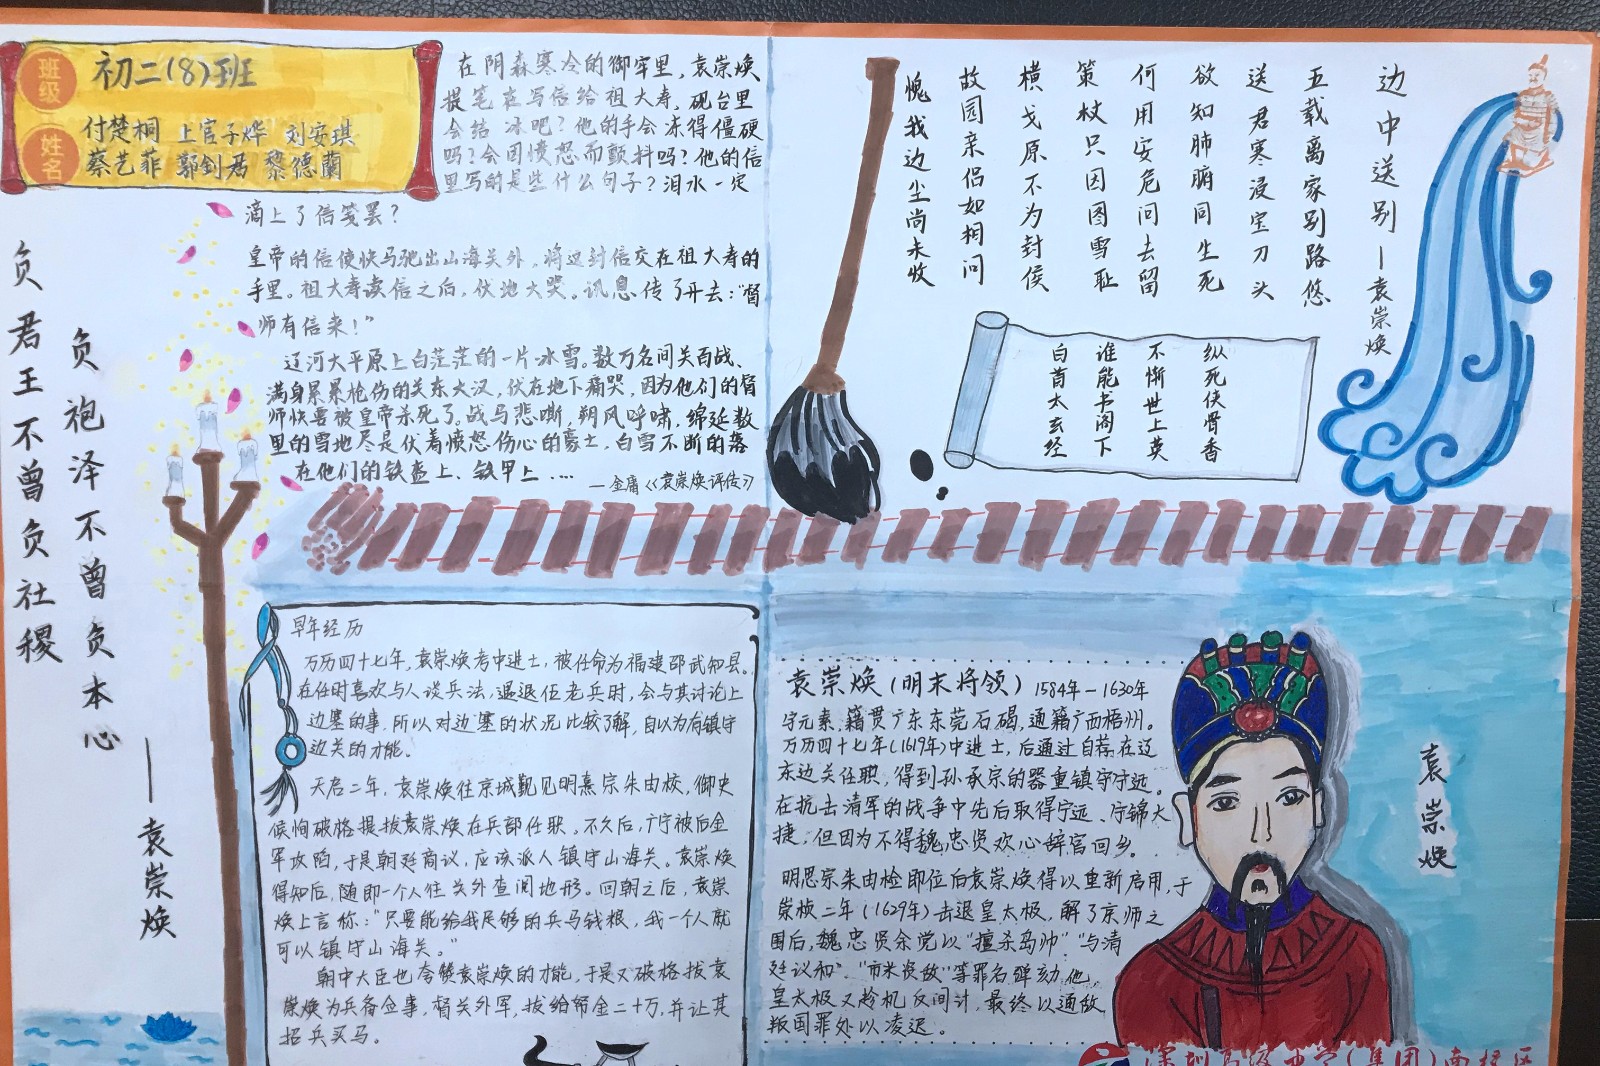 班级
初二(8)班
姓名
付楚桐 上官子烨 刘安琪
蔡艺菲 郭钊君 黎德蘭
在阴森寒冷的御牢里,袁崇焕
提笔在写信给祖大寿,砚台里
会结冰吧?他的手会冻得僵硬
吗?会因愤怒而颤抖吗?他的信
里写的是些什么句子?泪水一定
滴上了信笺罢?
皇帝的信使快马驰出山海关外,将这封信交在祖大寿的
手里。祖大寿读信之后,伏地大哭。讯息传了开去:“督
师有信来!”
辽河大平原上白茫茫的一片冰雪。数万名间关百战、
满身累累枪伤的关东大汉,伏在地下痛哭,因为他们的督
师快要被皇帝杀死了。战马悲嘶,朔风呼啸,绵延数
里的雪地尽是伏着愤怒伤心的豪士,白雪不断的落
在他们的铁盔上、铁甲上....
—金庸《袁崇焕评传》
负君王不曾负社稷
负袍泽不曾负本心
——袁崇焕
边中送别—袁崇焕
五载离家别路悠
送君寒浸宝刀头
欲知肺腑同生死
何用安危问去留
策杖只因图雪耻
横戈原不为封侯
故园亲侣如相问
愧我边尘尚未收
纵死侠骨香
不惭世上英
谁能书阁下
白首太玄经
早年经历
万历四十七年,袁崇焕考中进士,被任命为福建邵武知县。
在任时喜欢与人谈兵法,遇退伍老兵时,会与其讨论上
边塞的事,所以对边塞的状况比较了解,自以为有镇守
边关的才能。
天启二年,袁崇焕往京城觐见明熹宗朱由校,御史
候恂破格提拔袁崇焕在兵部任职。不久后,广宁被后金
军攻陷,于是朝廷商议,应该派人镇守山海关。袁崇焕
得知后,随即一个人往关外查阅地形。回朝之后,袁崇
焕上言称:“只要能给我足够的兵马钱粮,我一个人就
可以镇守山海关。”
朝中大臣也夸赞袁崇焕的才能,于是又破格拔袁
崇焕为兵备佥事,督关外军,拔给帑金二十万,并让其
招兵买马。
袁崇焕(明末将领)1584年-1630年
字元素,籍贯广东东莞石碣,通籍广西梧州。
万历四十七年(1619年)中进士,后通过自荐在辽
东边关任职,得到孙承宗的器重镇守宁远。
在抗击清军的战争中先后取得宁远、宁锦大
捷,但因为不得魏忠贤欢心辞官回乡。
明思宗朱由检即位后袁崇焕得以重新启用,于
崇祯二年(1629年)击退皇太极,解了京师之
围后,魏忠贤余党以“擅杀岛帅”“与清
廷议和”、“市米资敌”等罪名弹劾他,
皇太极又趁机反间计,最终以通敌
叛国罪处以凌迟。
袁崇焕